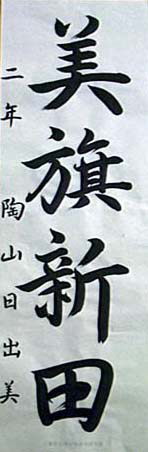 美旗新田
二年 陶山日出美